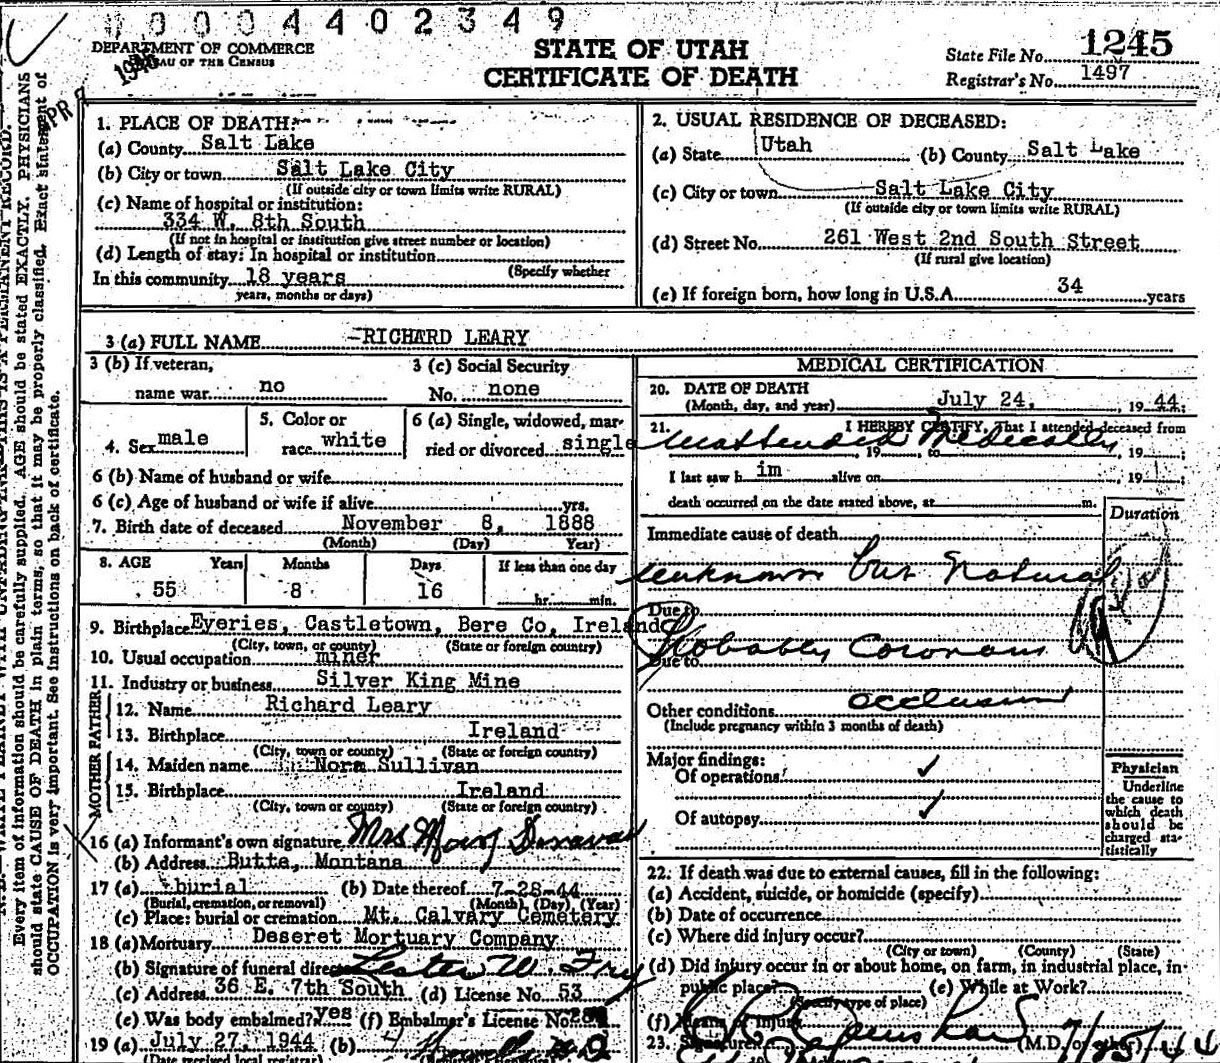 0004402349
DEPARTMENT OF COMMERCE
BUREAU OF THE CENSUS
STATE OF UTAH
CERTIFICATE OF DEATH
State File No. 1245
Registrar's No. 1497
Every item of information should be carefully supplied. AGE should be stated EXACTLY. PHYSICIANS
should state CAUSE OF DEATH in plain terms, so that it may be properly classified. Exact statement of
OCCUPATION is very important. See instructions on back of certificate.
1. PLACE OF DEATH:
(a) County Salt Lake
(b) City or town Salt Lake City
(If outside city or town limits write RURAL)
(c) Name of hospital or institution:
334 W. 8th South
(If not in hospital or institution give street number or location)
(d) Length of stay: In hospital or institution
(Specify whether
In this community 18 years
years, months or days)
2. USUAL RESIDENCE OF DECEASED:
(a) State Utah (b) County Salt Lake
(c) City or town Salt Lake City
(If outside city or town limits write RURAL)
(d) Street No. 261 West 2nd South Street
(If rural give location)
(e) If foreign born, how long in U.S.A. 34 years
3 (a) FULL NAME RICHARD LEARY
3 (b) If veteran,
name war no
3 (c) Social Security
No. none
4. Sex male
5. Color or
race white
6 (a) Single, widowed, mar-
ried or divorced single
6 (b) Name of husband or wife
6 (c) Age of husband or wife if alive yrs.
7. Birth date of deceased November 8, 1888
(Month) (Day) Year)
8. AGE Years Months Days If less than one day
55 8 16 hr. min.
9. Birthplace Eyeries, Castletown, Bere Co, Ireland
(City, town, or county) (State or foreign country)
10. Usual occupation miner
11. Industry or business Silver King Mine
FATHER
12. Name Richard Leary
13. Birthplace Ireland
(City, town or county) (State or foreign country)
MOTHER
14. Maiden name Nora Sullivan
15. Birthplace Ireland
(City, town or county) (State or foreign country)
16 (a) Informant's own signature Mrs
(b) Address Butte, Montana
17 (a) burial (b) Date thereof 7-28-44
(Burial, cremation, or removal) (Month), (Day), (Year)
(c) Place: burial or cremation Mt. Calvary Cemetery
18 (a) Mortuary Deseret Mortuary Company
(b) Signature of funeral director Lester W. Fry
(c) Address 36 E. 7th South (d) License No. 53
(e) Was body embalmed? yes (f) Embalmer's License No.
19 (a) July 27, 1944 (b)
(Date received local registrar)
MEDICAL CERTIFICATION
20. DATE OF DEATH
(Month, day, and year) July 24, 1944;
21. I HEREBY CERTIFY, That I attended deceased from
unattended Medically
, 19 , to , 19 ;
I last saw him alive on , 19 ;
death occurred on the date stated above, at m.
Duration
Immediate cause of death
unknown but Natural
Due to
Probably Coronary
Due to
occlusion
Other conditions
(Include pregnancy within 3 months of death)
Major findings:
Of operations ✓
Of autopsy ✓
Physician
Underline
the cause to
which death
should be
charged sta-
tistically
22. If death was due to external causes, fill in the following:
(a) Accident, suicide, or homicide (specify)
(b) Date of occurrence
(c) Where did injury occur?
(City or town) (County) (State)
(d) Did injury occur in or about home, on farm, in industrial place, in
public place? (e) While at Work?
(Specify type of place)
(f) Means of Injury
23. Signature (M.D. or other)